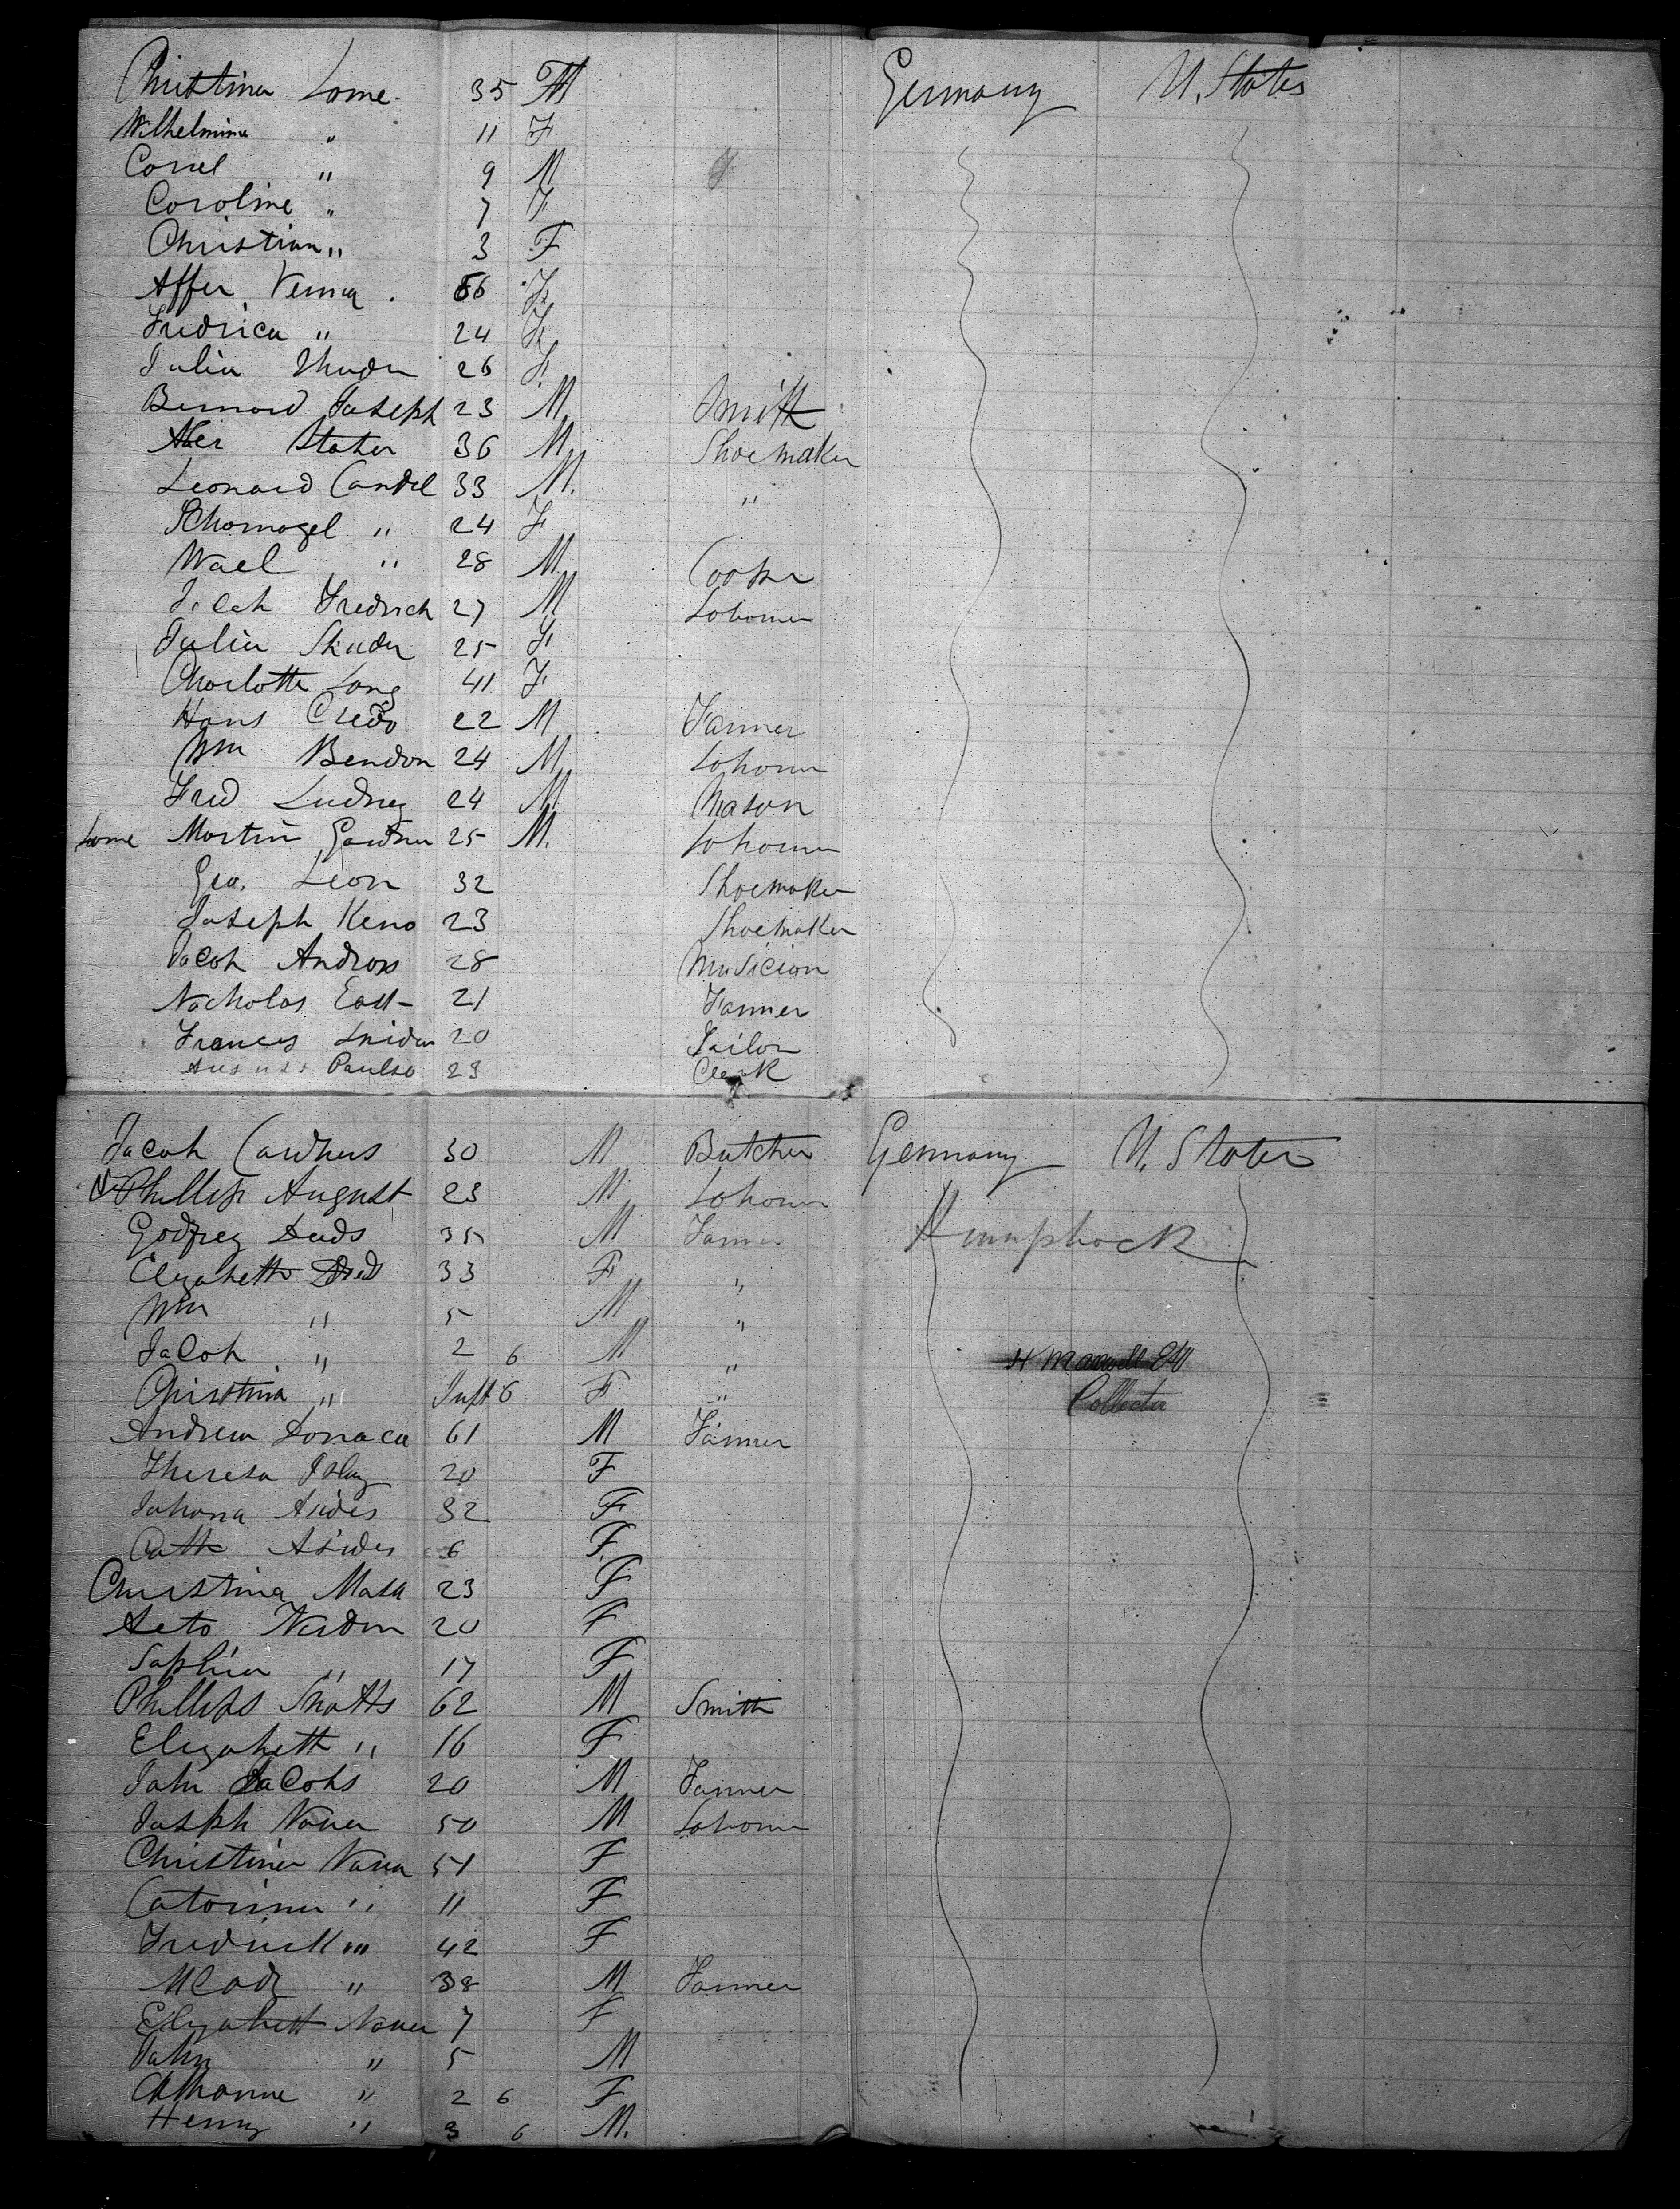 Christina Lome 35 F Germany U. States
Wilhelmina " 11 F
Correl " 9 M
Caroline " 7 F
Christian " 3 F
Affer Verner 56 F
Fredrica " 24 F
Julia 26 F
Bernard Joseph 23 M Smith
Stater 36 M Shoemaker
Leonard Candel 33 M. "
Schomagel " 24 F
Wael " 28 M Cooper
Jacob Fredrich 27 M Laborer
Julia Shuder 25 F
Charlotte Long 41 F
Hans Credo 22 M Farmer
Wm Bendon 24 M Laborer
Fred Ludney 24 M Mason
Lome Martin Gardner 25 M. Laborer
Geo. Leon 32 Shoemaker
Joseph Keno 23 Shoemaker
Jacob Andross 28 Musician
Nicholas East 21 Farmer
Frances Snider 20 Tailor
August Paulso 23 Clerk
Jacob Cardners 30 M Butcher Germany U. States
Phillip August 23 M Laborer
Godfrey Deeds 35 M Farmer Humpback
Elizabeth Deeds 33 F "
Wm " 5 M "
Jacob " 2 6 M " H Maxwell Esq
Christina " Inft 6 F " Collector
Andrew Lonacer 61 M Farmer
Theresa 20 F
Johana Asides 32 F
Cath Asides 6 F
Christina Masa 23 F
Aeto Nerdon 20 F
Sophia " 17 F
Phillips Shotts 62 M Smith
Elizabeth " 16 F
John Jacobs 20 M Farmer
Joseph Naner 50 M Laborer
Christiner Naner 51 F
Catorina " 11 F
Fredrick " 42 F
" 38 M Farmer
Elizabeth Naner 7 F
John " 5 M
" 2 6 F
Henry " 3 6 M.